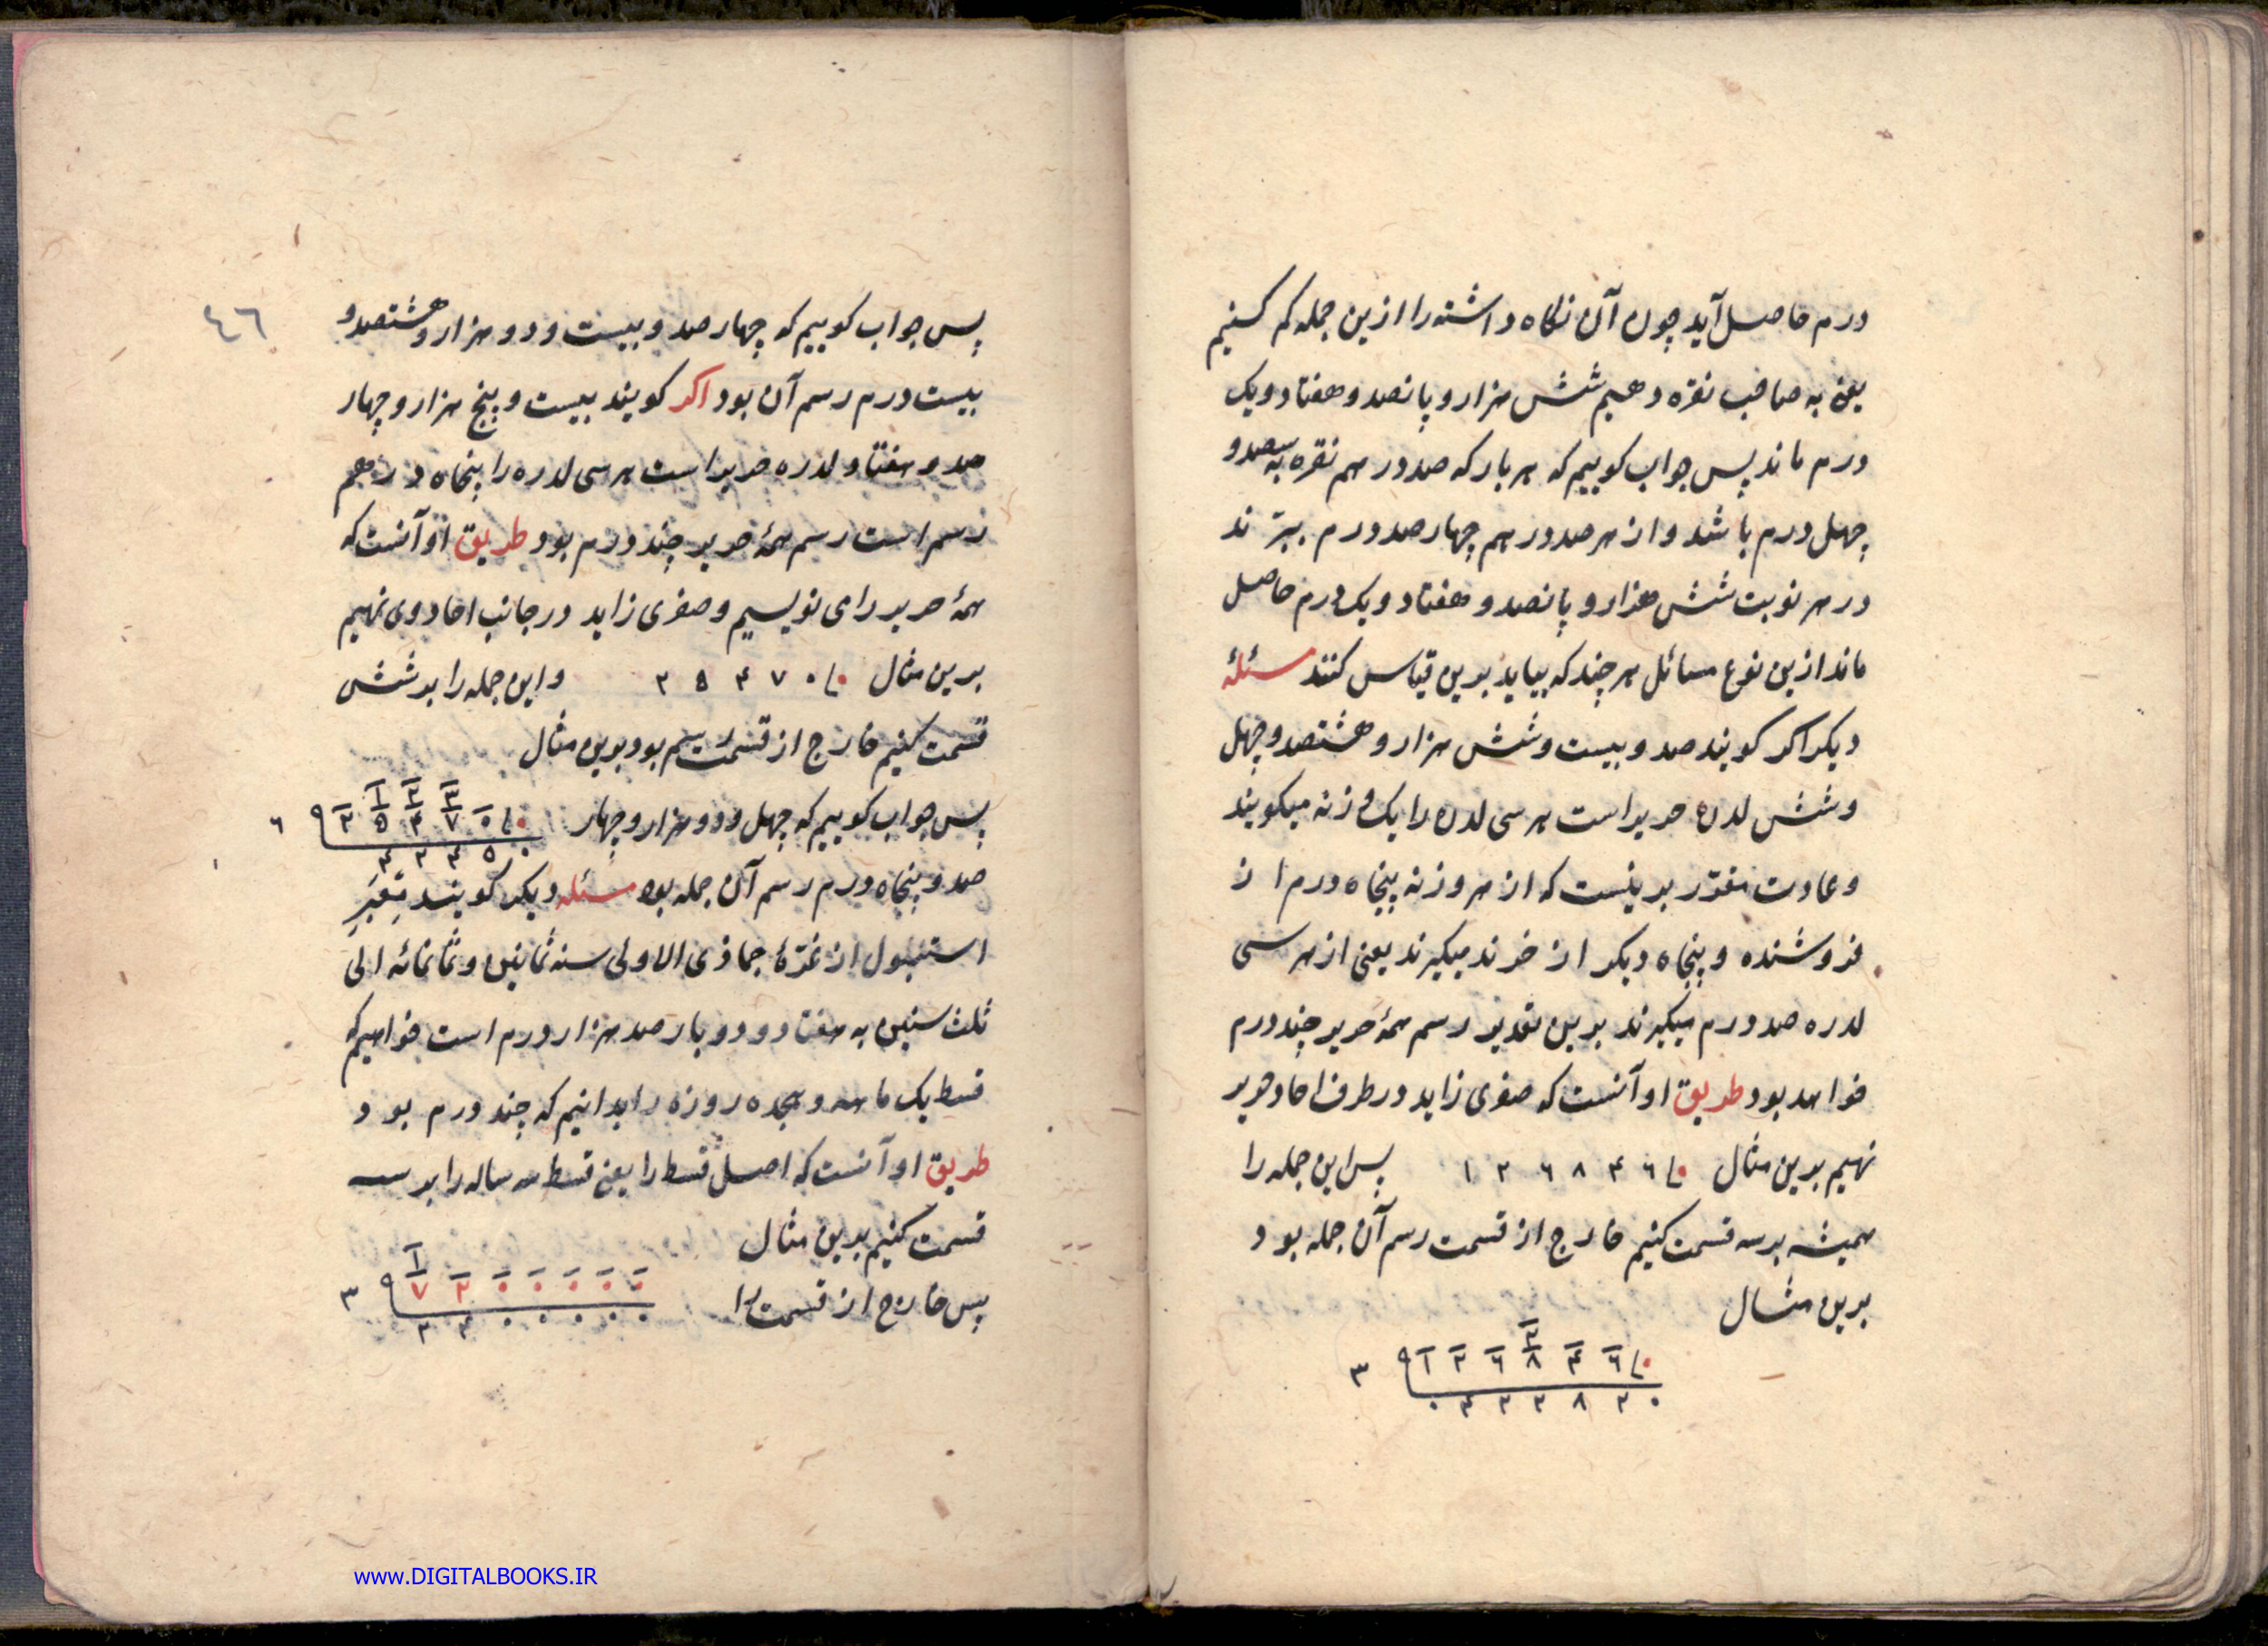 درم حاصل آید چون آن نکاه داشته را ازین جمله کم کنیم
یعنی به صاحب نقره دهیم شش هزار و پانصد و هفتاد و یک
درم ماند پس جواب کوییم که هر بار که صد درهم نقره به سیصد و
چهل درم باشد و از هر صد درهم چهار صد درم ببرند
در هر نوبت شش هزار و پانصد و هفتاد و یک درم حاصل
ماند ازین نوع مسائل هر چند که بیاید برین قیاس کنند مسئله
دیکر اکر کویند صد و بیست و شش هزار و هشتصد و چهل
و شش لدره حریر است هر سی لدره را یک وزنه میکویند
و عادت مقرّر برینست که از هر وزنه پنجاه درم از
فروشنده و پنجاه دیکر از خرند میکیرند یعنی از هر سی
لدره صد درم میکیرند برین تقدیر رسم همهٔ حریر چند درم
خواهد بود طریق او آنست که صفری زاید در طرف احاد حریر
نهیم برین مثال ۱ ۲ ۶ ۸ ۴ ۶ ۰ پس این جمله را
همیشه بر سه قسمت کنیم خارج از قسمت رسم آن جمله بود
برین مثال
۲
۳ ۱ ۲ ۶ ۸ ۴ ۶ ۰
۰ ۴ ۲ ۲ ۸ ۲ ۰
٤٦
پس جواب کوییم که چهار صد و بیست و دو هزار و هشتصد و
بیست درم رسم آن بود اکر کویند بیست و پنج هزار و چهار
صد و هفتاد لدره حریر است هر سی لدره را پنجاه درهم
رسم است رسم همهٔ حریر چند درم بود طریق او آنست که
همهٔ حریر را می نویسیم و صفری زاید در جانب احاد وی نهیم
برین مثال ۲ ۵ ۴ ۷ ۰ ۰ و این جمله را بر شش
قسمت کنیم خارج از قسمت رسم بود برین مثال
پس جواب کوییم که چهل و دو هزار و چهار
۱ ۲ ۳
۶ ۲ ۵ ۴ ۷ ۰ ۰
۴ ۲ ۴ ۵ ۰
صد و پنجاه درم رسم آن جمله بود مسئله دیکر کویند
استنبول از غرّهٔ جماذی الاولی سنه ثمانین و ثمانمائه الی
ثلث سنین به هفتاد و دو بار صد هزار درم است خواهیم که
قسط یک ماهه و هجده روزه را بدانیم که چند درم بود
طریق او آنست که اصل قسط را یعنی قسط سه ساله را بر سه
قسمت کنیم برین مثال
۱
۳ ۷ ۲ ۰ ۰ ۰ ۰ ۰
۲ ۴ ۰ ۰ ۰ ۰ ۰
پس خارج از قسمت را
www.DIGITALBOOKS.IR